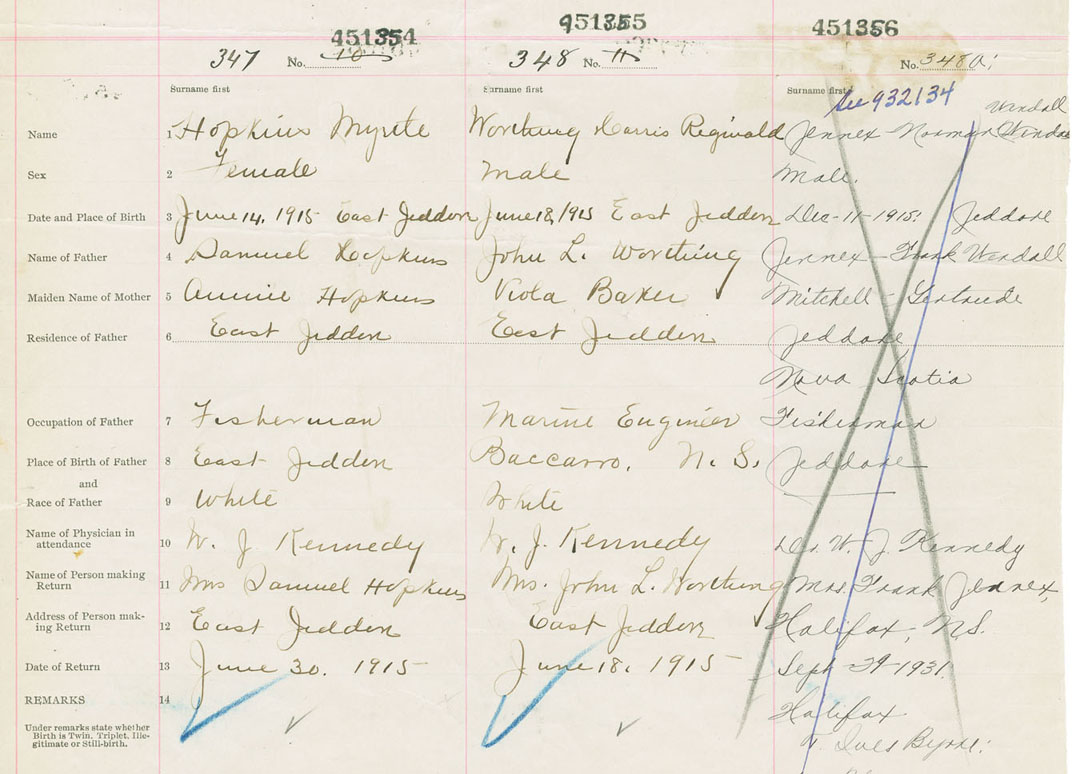 451354 451355 451356
347 No. 10 348 No. 11 No. 348a.
Surname first Surname first Surname first See 932134
Wendall
Name 1 Hopkins Myrtle Worthing Harris Reginald Jennex Norman
Sex 2 Female Male Male.
Date and Place of Birth 3 June 14, 1915 East Jeddore June 18, 1915 East Jeddore Dec-11-1915: Jeddore
Name of Father 4 Samuel Hopkins John L. Worthing Jennex - Frank Wendall
Maiden Name of Mother 5 Annie Hopkins Viola Baker Mitchell - Gertrude
Residence of Father 6 East Jeddore East Jeddore Jeddore
Nova Scotia
Occupation of Father 7 Fisherman Marine Engineer Fisherman
Place of Birth of Father 8 East Jeddore Baccarro, N.S. Jeddore
and
Race of Father 9 White White
Name of Physician in
attendance 10 W. J. Kennedy W. J. Kennedy Dr. W. J. Kennedy
Name of Person making
Return 11 Mrs Samuel Hopkins Mrs. John L. Worthing Mrs. Frank Jennex,
Address of Person mak-
ing Return 12 East Jeddore East Jeddore Halifax, N.S.
Date of Return 13 June 30. 1915 June 18. 1915 Sept-29-1931.
REMARKS 14
Halifax
Under remarks state whether
Birth is Twin, Triplet, Ille-
gitimate or Still-birth.
Byrne: